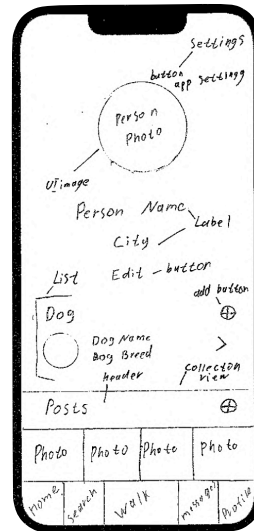 Settings
button
app settingg
Person
Photo
UI image
Person Name
Label
City
List
Edit - button
add button
Dog
Dog Name
Dog Breed
>
header
Collecton
view
Posts
Photo Photo Photo Photo
Home Search Walk messages Profile